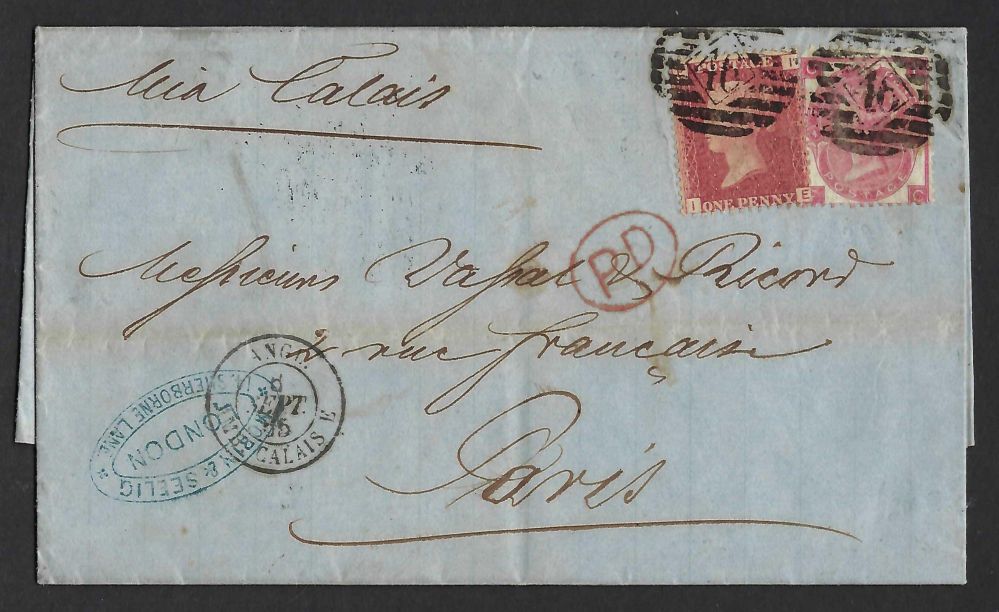 Via Calais
POSTAGE
16
16
I ONE PENNY E
POSTAGE
G
PD
Messieurs Vassal & Ricord
2 rue française
Paris
ANGL.
8
SEPT.
65
CALAIS E
& SEELIG
SHERBORNE LANE
LONDON